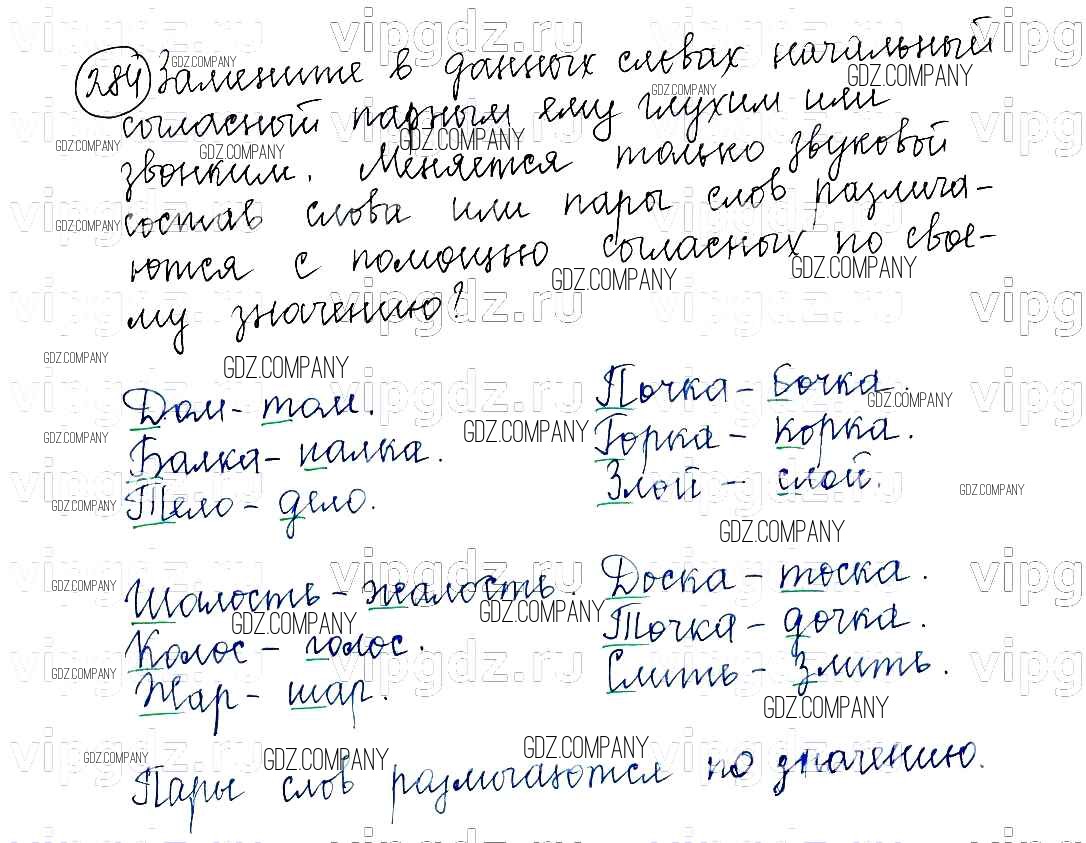 284 Замените в данных словах начальный
согласный парным ему глухим или
звонким. Меняется только звуковой
состав слова или пары слов различа-
ются с помощью согласных по свое-
му значению?
Дом - том. Почка - бочка.
Балка - палка. Горка - корка.
Тело - дело. Злой - слой.
Шалость - жалость. Доска - тоска.
Колос - голос. Точка - дочка.
Жар - шар. Слить - злить.
Пары слов различаются по значению.
vipgdz.ru
GDZ.COMPANY